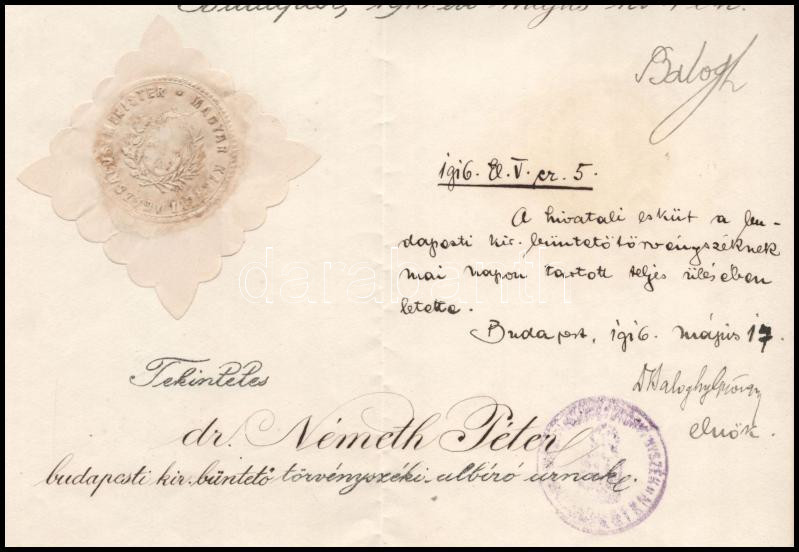 Budapest, 1916. évi május hó
Balogh
MAGYAR KIR.
1916. El. V. er. 5.
A hivatali esküt a bu-
dapesti kir. büntetőtörvényszéknek
mai napon tartott teljes ülésében
letette.
Budapest, 1916. május 17.
Dr Baloghy György
elnök.
Tekintetes
dr. Németh Péter
budapesti kir. büntető törvényszéki albíró urnak.
darabanth